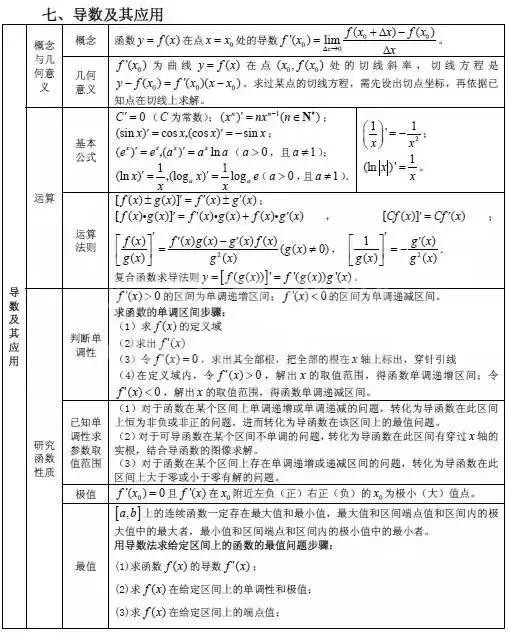 七、导数及其应用
导数及其应用
概念与几何意义
概念
函数 y=f(x) 在点 x=x₀ 处的导数 f'(x₀)=lim(Δx→0) [f(x₀+Δx)-f(x₀)]/Δx 。
几何意义
f'(x₀) 为曲线 y=f(x) 在点 (x₀,f(x₀)) 处的切线斜率，切线方程是
y-f(x₀)=f'(x₀)(x-x₀)。求过某点的切线方程，需先设出切点坐标，再依据已
知点在切线上求解。
运算
基本公式
C'=0（C 为常数）；(xⁿ)'=nxⁿ⁻¹(n∈N*)；
(sin x)'=cos x,(cos x)'=-sin x；
(eˣ)'=eˣ,(aˣ)'=aˣ ln a（a>0，且 a≠1）；
(ln x)'=1/x,(logₐx)'=1/x logₐe（a>0，且 a≠1）.
(1/x)'=-1/x²；
(ln|x|)'=1/x 。
运算法则
[f(x)±g(x)]'=f'(x)±g'(x)；
[f(x)•g(x)]'=f'(x)•g(x)+f(x)•g'(x) ， [Cf(x)]'=Cf'(x) ；
[f(x)/g(x)]'=[f'(x)g(x)-g'(x)f(x)]/g²(x) (g(x)≠0)，[1/g(x)]'=-g'(x)/g²(x).
复合函数求导法则 y=[f(g(x))]'=f'(g(x))g'(x)。
研究函数性质
判断单调性
f'(x)>0 的区间为单调递增区间；f'(x)<0 的区间为单调递减区间。
求函数的单调区间步骤：
（1）求 f(x) 的定义域
（2)求出 f'(x)
（3）令 f'(x)=0，求出其全部根，把全部的根在 x 轴上标出，穿针引线
（4)在定义域内，令 f'(x)>0，解出 x 的取值范围，得函数单调递增区间；令
f'(x)<0，解出 x 的取值范围，得函数单调递减区间。
已知单调性求参数取值范围
（1）对于函数在某个区间上单调递增或单调递减的问题，转化为导函数在此区间
上恒为非负或非正的问题，进而转化为导函数在该区间上的最值问题。
（2）对于可导函数在某个区间不单调的问题,转化为导函数在此区间有穿过 x 轴的
实根，结合导函数的图像求解。
（3）对于函数在某个区间上存在单调递增或递减区间的问题，转化为导函数在此
区间上大于零或小于零有解的问题。
极值
f'(x₀)=0 且 f'(x) 在 x₀ 附近左负（正）右正（负）的 x₀ 为极小（大）值点。
最值
[a,b] 上的连续函数一定存在最大值和最小值，最大值和区间端点值和区间内的极
大值中的最大者，最小值和区间端点和区间内的极小值中的最小者。
用导数法求给定区间上的函数的最值问题步骤：
(1)求函数 f(x) 的导数 f'(x)；
(2)求 f(x) 在给定区间上的单调性和极值；
(3)求 f(x) 在给定区间上的端点值；